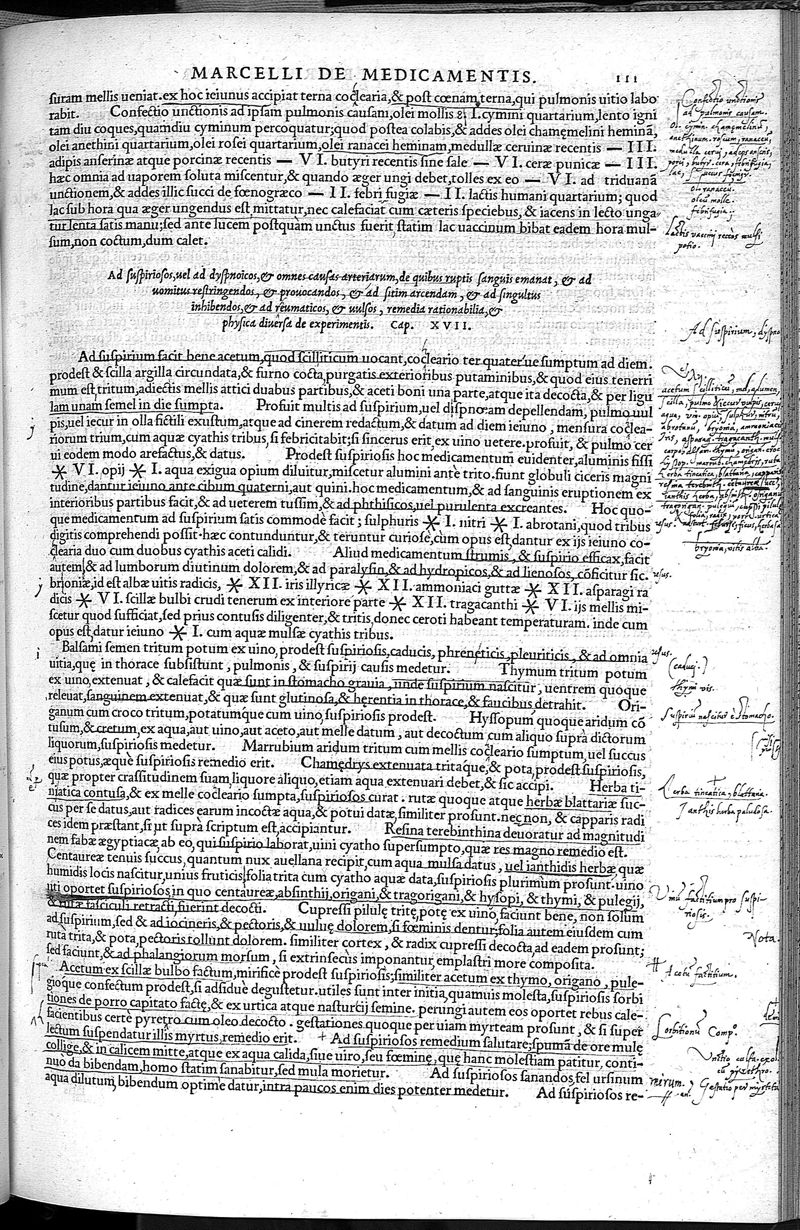 MARCELLI DE MEDICAMENTIS. 111
suram mellis ueniat. ex hoc ieiunus accipiat terna coclearia, & post cœnam terna, qui pulmonis uitio labo
rabit. Confectio unctionis ad ipsam pulmonis causam, olei mollis ℥ I. cymini quartarium, lento igni
tam diu coques, quandiu cyminum percoquatur; quod postea colabis, & addes olei chamęmelini heminā,
olei anethini quartarium, olei rosei quartarium, olei ranacei heminam, medullæ ceruinæ recentis — III.
adipis anserinæ atque porcinæ recentis — VI. butyri recentis sine sale — VI. ceræ punicæ — III.
hæc omnia ad uaporem soluta miscentur, & quando æger ungi debet, tolles ex eo — VI. ad triduanā
unctionem, & addes illic succi de fœnogræco — II. febri fugiæ — II. lactis humani quartarium; quod
lac sub hora qua æger ungendus est, mittatur, nec calefaciat cum cæteris speciebus, & iacens in lecto unga-
tur lenta satis manu; sed ante lucem postquam unctus fuerit, statim lac uaccinum bibat eadem hora mul-
sum, non coctum, dum calet.
Ad suspiriosos, uel ad dyspnoicos, & omnes causas arteriarum, de quibus ruptis sanguis emanat, & ad
uomitus restringendos, & prouocandos, & ad sitim arcendam, & ad singultus
inhibendos, & ad reumaticos, & uulsos, remedia rationabilia, &
physica diuersa de experimentis. Cap. XVII.
Ad suspirium facit bene acetum, quod scilliticum uocant, cocleario ter quaterue sumptum ad diem.
prodest & scilla argilla circundata, & furno cocta, purgatis exterioribus putaminibus, & quod eius tenerri
mum est, tritum, adiectis mellis attici duabus partibus, & aceti boni una parte, atque ita decocta, & per ligu
lam unam semel in die sumpta. Profuit multis ad suspirium, uel dispnœam depellendam, pulmo uul
pis, uel iecur in olla fictili exustum, atque ad cinerem redactum, & datum ad diem ieiuno, mensura coclea-
riorum trium, cum aquæ cyathis tribus, si febricitabit; si sincerus erit, ex uino uetere. profuit, & pulmo cer
ui eodem modo arefactus, & datus. Prodest suspiriosis hoc medicamentum euidenter, aluminis fissi
✳ VI. opij ✳ I. aqua exigua opium diluitur, miscetur alumini ante trito. fiunt globuli ciceris magni
tudine, dantur ieiuno ante cibum quaterni, aut quini. hoc medicamentum, & ad sanguinis eruptionem ex
interioribus partibus facit, & ad ueterem tussim, & ad phthisicos, uel purulenta excreantes. Hoc quo-
que medicamentum ad suspirium satis commode facit; sulphuris ✳ I. nitri ✳ I. abrotani, quod tribus
digitis comprehendi possit. hæc contunduntur, & teruntur curiose, cum opus est, dantur ex ijs ieiuno co-
clearia duo cum duobus cyathis aceti calidi. Aliud medicamentum strumis, & suspirio efficax, facit
autem, & ad lumborum diutinum dolorem, & ad paralysin, & ad hydropicos, & ad lienosos, cōficitur sic.
brioniæ, id est albæ uitis radicis, ✳ XII. iris illyricæ ✳ XII. ammoniaci guttæ ✳ XII. asparagi ra
dicis ✳ VI. scillæ bulbi crudi tenerum ex interiore parte ✳ XII. tragacanthi ✳ VI. ijs mellis mi-
scetur quod sufficiat, sed prius contusis diligenter, & tritis, donec ceroti habeant temperaturam. inde cum
opus est, datur ieiuno ✳ I. cum aquæ mulsæ cyathis tribus.
Balsami semen tritum potum ex uino, prodest suspiriosis, caducis, phreneticis, pleuriticis, & ad omnia
uitia, quę in thorace subsistunt, pulmonis, & suspirij causis medetur. Thymum tritum potum
ex uino, extenuat, & calefacit quæ sunt in stomacho grauia, unde suspirium nascitur, uentrem quoque
releuat, sanguinem extenuat, & quæ sunt glutinosa, & herentia in thorace, & faucibus, detrahit. Ori-
ganum cum croco tritum, potatumque cum uino, suspiriosis prodest. Hyssopum quoque aridum cō
tusum, & cretum, ex aqua, aut uino, aut aceto, aut melle datum, aut decoctum cum aliquo supra dictorum
liquorum, suspiriosis medetur. Marrubium aridum tritum cum mellis cocleario sumptum, uel succus
eius potus, æque suspiriosis remedio erit. Chamędrys extenuata tritaque, & pota, prodest suspiriosis,
quæ propter crassitudinem suam, liquore aliquo, etiam aqua extenuari debet, & sic accipi. Herba ti-
niatica contusa, & ex melle cocleario sumpta, suspiriosos curat. rutæ quoque atque herbæ blattariæ suc-
cus per se datus, aut radices earum incoctæ aqua, & potui datæ, similiter prosunt. nec non, & capparis radi
ces idem præstant, si ut supra scriptum est, accipiantur. Resina terebinthina deuoratur ad magnitudi
nem fabæ ægyptiacæ ab eo, qui suspirio laborat, uini cyatho supersumpto, quæ res magno remedio est.
Centaureæ tenuis succus, quantum nux auellana recipit, cum aqua mulsa datus, uel ianthidis herbæ, quæ
humidis locis nascitur, unius fruticis, folia trita cum cyatho aquæ data, suspiriosis plurimum prosunt. uino
uti oportet suspiriosos, in quo centaureæ, absinthij, origani, & tragorigani, & hysopi, & thymi, & pulegij,
& rutæ fasciculi retracti, fuerint decocti. Cupressi pilulę tritę, potę ex uino, faciunt bene, non solum
ad suspirium, sed & ad iocineris, & pectoris, & uuluę dolorem, si fœminis dentur; folia autem eiusdem cum
ruta trita, & pota, pectoris tollunt dolorem. similiter cortex, & radix cupressi decocta, ad eadem prosunt;
sed faciunt, & ad phalangiorum morsum, si extrinsecus imponantur, emplastri more composita.
Acetum ex scillæ bulbo factum, mirifice prodest suspiriosis; similiter acetum ex thymo, origano, pule-
gioque confectum prodest, si adsidue degustetur. utiles sunt inter initia, quamuis molesta, suspiriosis sorbi
tiones de porro capitato factę, & ex urtica atque nasturtij semine. perungi autem eos oportet rebus cale-
facientibus certe pyretro cum oleo decocto. gestationes quoque per uiam myrteam prosunt, & si super
lectum suspendatur illis myrtus, remedio erit. + Ad suspiriosos remedium salutare; spumā de ore mulę
collige, & in calicem mitte, atque ex aqua calida, siue uiro, seu fœminę, quę hanc molestiam patitur, conti-
nuo da bibendam, homo statim sanabitur, sed mula morietur. Ad suspiriosos sanandos, fel ursinum
aqua dilutum, bibendum optime datur, intra paucos enim dies potenter medetur. Ad suspiriosos re-
Confectio unctionis
ad pulmonis causam.
Ad suspirium, dyspno
bryonia, uitis alba.
thymi uis.
Suspiriū nascitur è stomacho.
Herba tineatica, blattaria.
Ianthis herba paludosa.
Nota.
Acetū factitium.